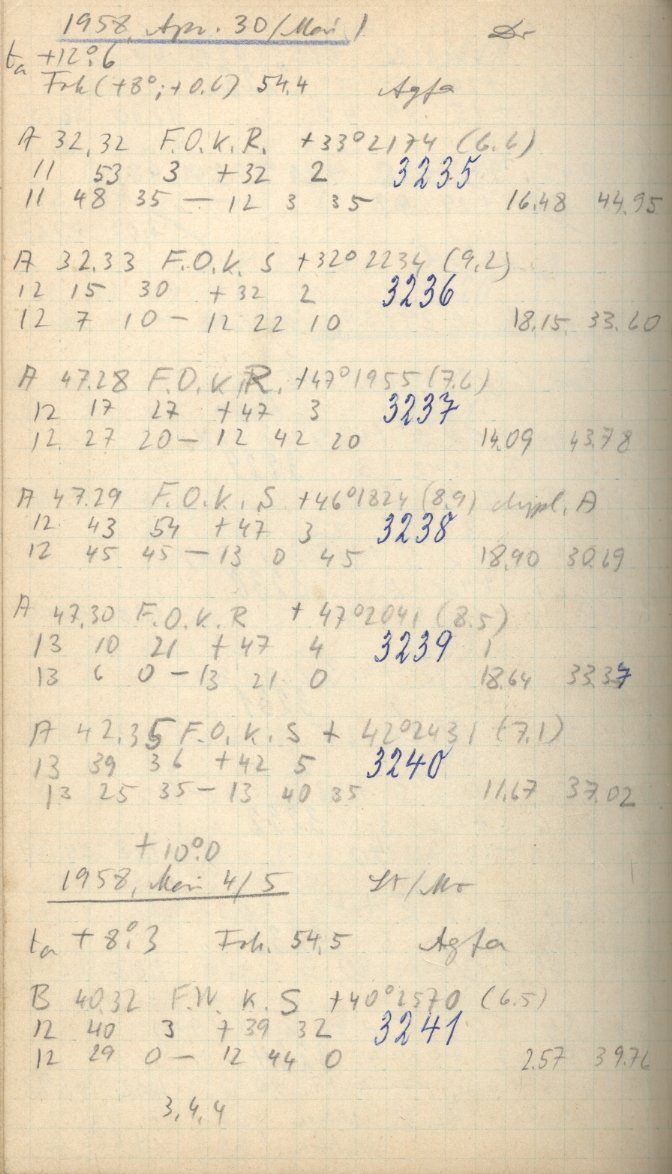 1958, Apr. 30/Mai 1 Dr
ta +12°.6
Fok (+8°; +0.6) 54.4 Agfa
A 32.32 F.O.K.R. +33°2174 (6.6)
11 53 3 +32 2 3235
11 48 35 — 12 3 35 16.48 44.95
A 32.33 F.O.K. S +32°2234 (9.2)
12 15 30 +32 2 3236
12 7 10 — 12 22 10 18.15 33.60
A 47.28 F.O.K.R. +47°1955 (7.6)
12 17 27 +47 3 3237
12 27 20 — 12 42 20 14.09 43.78
A 47.29 F.O.K. S +46°1824 (8.9) A
12 43 54 +47 3 3238
12 45 45 — 13 0 45 18.90 30.69
A 47.30 F.O.K.R +47°2041 (8.5)
13 10 21 +47 4 3239
13 6 0 — 13 21 0 18.64 33.37
A 42.35 F.O.K.S + 42°2431 (7.1)
13 39 36 +42 5 3240
13 25 35 — 13 40 35 11.67 37.02
+10°.0
1958, Mai 4/5 St/Mo
ta +8°.3 Fok. 54.5 Agfa
B 40.32 F.W. K. S +40°2570 (6.5)
12 40 3 +39 32 3241
12 29 0 — 12 44 0 2.57 39.76
3,4,4